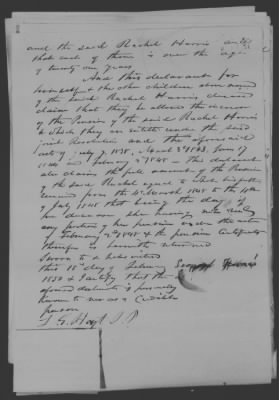 and the said Rachel Harris and
that each of them is over the age
of twenty one years
And this declarant for
himself & the other children above named
of the said Rachel Harris deceased
claims that they be allowed the arrears
of the Pension of the said Rachel Harris
to which they are entitled under the said
joint Resolution and the aforesaid
acts of July 7 1838, March 3d 1843, June 17
1844 and February 2d 1848 — This declarant
also claims the full amount of the Pension
of the said Rachel
from the 4th March 1848 to the 14th
of July 1848 that being the day of
her decease she having never received
any portion of her pension under the act
February 2d 1848 & the pension Certificate
therefor is herewith returned
Sworn to & subscribed
this 15th day of February
1850 & I certify that the
aforesaid declarant is personally
known to me as a credible
person
J. P.